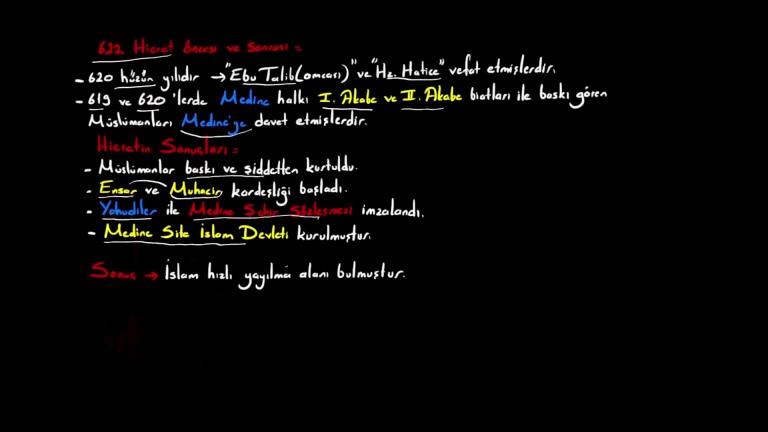 622 Hicret öncesi ve Sonrası =
- 620 hüzün yılıdır → "Ebu Talib(amcası)" ve "Hz. Hatice" vefat etmişlerdir.
- 619 ve 620 'lerde Medine halkı I. Akabe ve II. Akabe biatları ile baskı gören
Müslümanları Medine'ye davet etmişlerdir.
Hicretin Sonuçları =
- Müslümanlar baskı ve şiddetten kurtuldu.
- Ensar ve Muhacir kardeşliği başladı.
- Yahudiler ile Medine Şehir Sözleşmesi imzalandı.
- Medine Site İslam Devleti kurulmuştur.
Sonuç → İslam hızlı yayılma alanı bulmuştur.